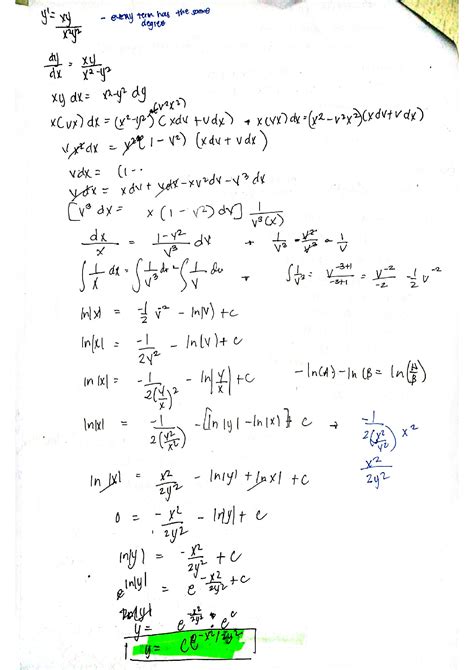 y' = xy / x²y² - every term has the same degree
dy/dx = xy / x²-y²
xy dx = x²-y² dy
x(vx)dx = (x²-y²)(xdv+vdx) (v²x²) * x(vx)dx = (x²-v²x²)(xdv+vdx)
vx²dx = x²(1-v²)(xdv+vdx)
vdx = (1-..
vdx = xdv + vdx - xv²dv - v³dx
[v³dx = x(1-v²)dv] 1/v³(x)
dx/x = 1-v²/v³ dv * 1/v³ - v²/v³ = 1/v
∫1/x dx = ∫1/v³ dv - ∫1/v dv * ∫1/v³ = v^-3+1/-3+1 = v^-2/-2 = -1/2 v^-2
ln|x| = -1/2 v^-2 - ln|v| + c
ln|x| = -1/2v² - ln|v| + c
ln|x| = -1/2(y/x)² - ln|y/x| + c - ln(A) - ln(B = ln(A/B)
ln|x| = -1/2(y²/x²) - [ln|y| - ln|x|] + c * -1/2(x²/y²) x²
ln|x| = x²/2y² - ln|y| + ln|x| + c x²/2y²
0 = -x²/2y² - ln|y| + c
ln|y| = -x²/2y² + c
e^ln|y| = e^-x²/2y² + c
y = e^-x²/2y² · e^c
y = ce^-x²/2y²